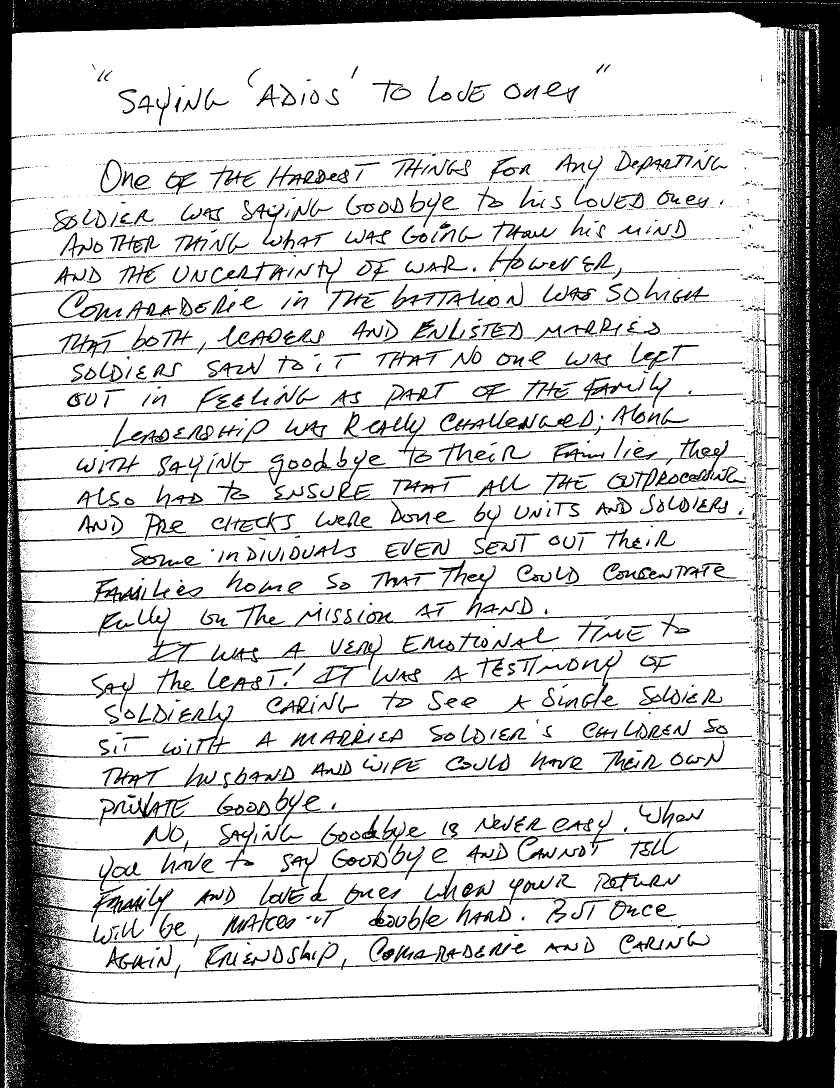 "SAYING 'ADIOS' TO LOVE ONES"
ONE OF THE HARDEST THINGS FOR ANY DEPARTING
SOLDIER WAS SAYING GOODBYE TO HIS LOVED ONES.
ANOTHER THING WHAT WAS GOING THRU HIS MIND
AND THE UNCERTAINTY OF WAR. HOWEVER,
COMARADERIE IN THE BATTALION WAS SO HIGH
THAT BOTH, LEADERS AND ENLISTED MARRIED
SOLDIERS SAW TO IT THAT NO ONE WAS LEFT
OUT IN FEELING AS PART OF THE FAMILY.
LEADERSHIP WAS REALLY CHALLENGED; ALONG
WITH SAYING GOODBYE TO THEIR FAMILIES, THEY
ALSO HAD TO ENSURE THAT ALL THE OUTPROCESSING
AND PRE CHECKS WERE DONE BY UNITS AND SOLDIERS.
SOME INDIVIDUALS EVEN SENT OUT THEIR
FAMILIES HOME SO THAT THEY COULD CONSENTRATE
FULLY ON THE MISSION AT HAND.
IT WAS A VERY EMOTIONAL TIME TO
SAY THE LEAST! IT WAS A TESTIMONY OF
SOLDIERLY CARING TO SEE A SINGLE SOLDIER
SIT WITH A MARRIED SOLDIER'S CHILDREN SO
THAT HUSBAND AND WIFE COULD HAVE THEIR OWN
PRIVATE GOODBYE.
NO, SAYING GOODBYE IS NEVER EASY. WHEN
YOU HAVE TO SAY GOODBYE AND CANNOT TELL
FAMILY AND LOVED ONES WHEN YOUR RETURN
WILL BE, MAKES IT DOUBLE HARD. BUT ONCE
AGAIN, FRIENDSHIP, COMARADERIE AND CARING